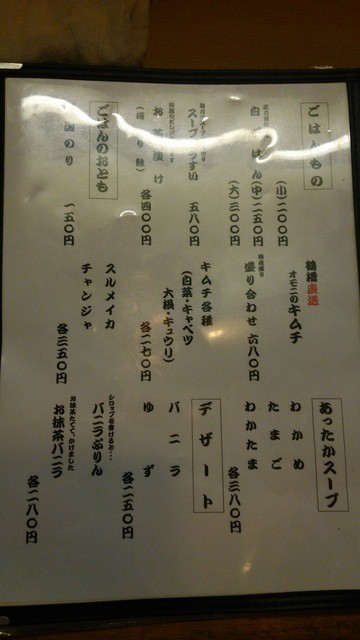 ごはんもの
(小)二〇〇円
白ごはん(中)二五〇円
(大)三〇〇円
スープぞうすい 五八〇円
お茶漬け
各四〇〇円
ごはんのおとも
のり 一五〇円
鶴橋直送
オモニのキムチ
盛り合わせ 六八〇円
キムチ各種
(白菜・キャベツ
大根・キュウリ)
各二七〇円
スルメイカ
チャンジャ
各三五〇円
あったかスープ
わかめ
たまご
わかたま
各三八〇円
デザート
バニラ
ゆず
各二五〇円
シロップを書けると・・・
バニラぷりん
お抹茶たてて、かけました
お抹茶バニラ
各二八〇円